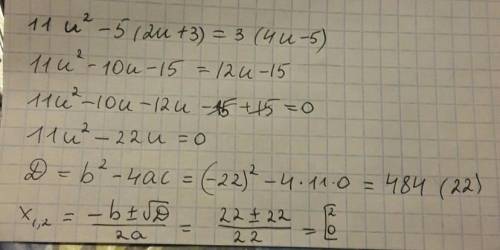 11u² - 5(2u+3) = 3(4u-5)
11u² - 10u - 15 = 12u - 15
11u² - 10u - 12u - 15 + 15 = 0
11u² - 22u = 0
D = b² - 4ac = (-22)² - 4·11·0 = 484 (22)
x₁,₂ = (-b ± √D)/2a = (22 ± 22)/22 = [2 0